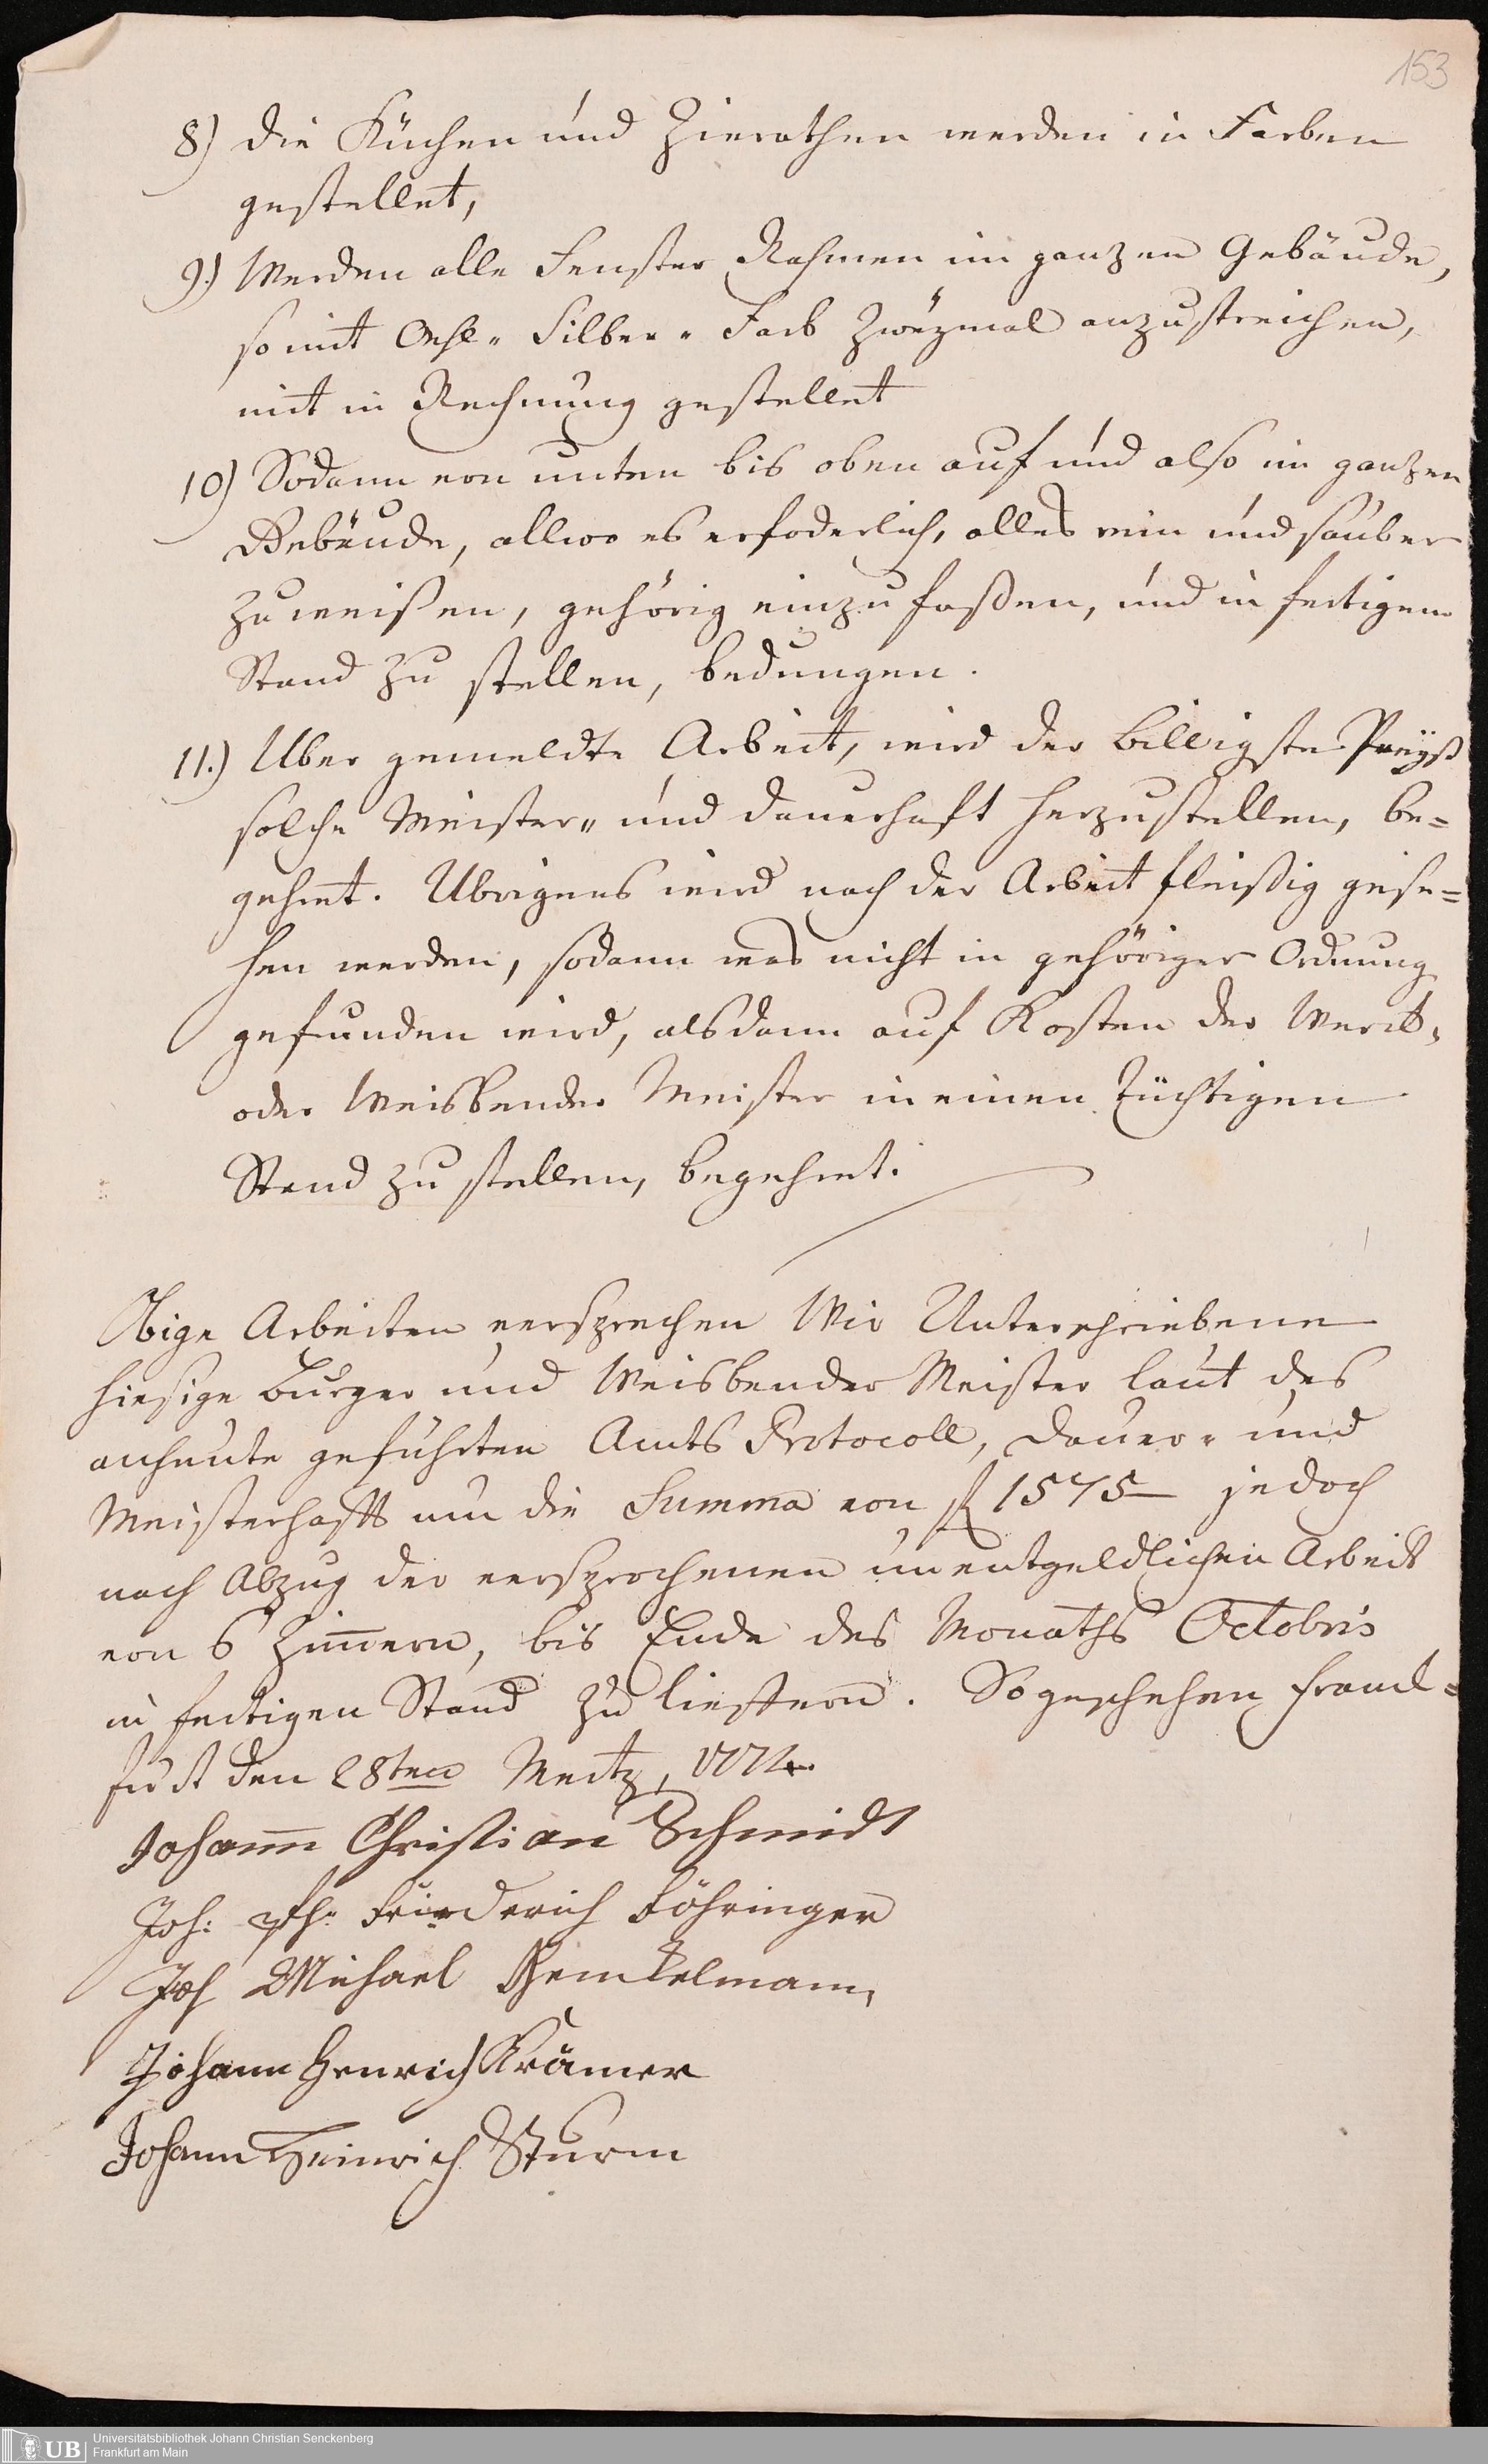 153
8) die Küchen und Zierathen werden in Farben
gestellet,
9.) Werden alle Fenster Rahmen im ganzen Gebäude,
so mit Oehl „ Silber „ Farb zweymal anzustreichen,
mit in Rechnung gestellet
10) Sodann von unten bis oben auf und also im ganzen
Gebäude, allwo es erfoderlich, alles rein und sauber
zu weißen, gehörig einzufaßen, und in fertigem
Stand zu stellen, bedungen.
11.) Uber gemeldte Arbeit, wird der billigste Preyß
solche Meister„ und dauerhaft herzustellen, be=
gehret. Ubrigens wird nach der Arbeit fleißig gese=
hen werden, sodann was nicht in gehöriger Ordnung
gefunden wird, alsdann auf Kosten der
oder Weisbender Meister in einen tüchtigen
Stand zu stellen, begehret.
Obige Arbeiten versprechen Wir Unterschriebene
hiesige Burger und Weisbender Meister laut des
anheute geführten Amts Protocoll, dauer- und
Meisterhafft um die Summa von f 1575 — jedoch
nach Abzug der versprochenen unentgeldlichen Arbeit
von 6 Zim̄ern, bis Ende des Monaths Octobris
in fertigen Stand zu lieffern. So geschehen Franck=
furt den 28ten Mertz, 1772.
Johann Christian Schmidt
Joh: Ph: Friederich Böhringer
Joh Michael
Johann Henrich Krämer
Johann Heinrich Sturm
UB
Universitätsbibliothek Johann Christian Senckenberg
Frankfurt am Main